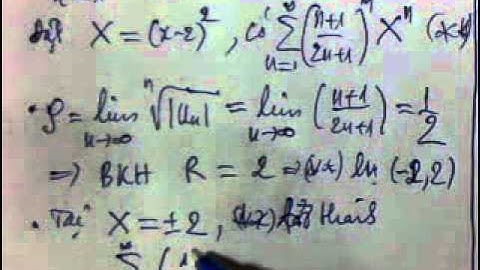 Đặt X = (x-2)², có ∑_{n=1}^{∞} ((n+1)/(2n+1))ⁿ Xⁿ (**)
• ρ = lim_{n→∞} ⁿ√|Un| = lim_{n→∞} ((n+1)/(2n+1)) = 1/2
⇒ BKH R = 2 ⇒ (**) (-2,2)
• Tại X = ±2,
∑ (